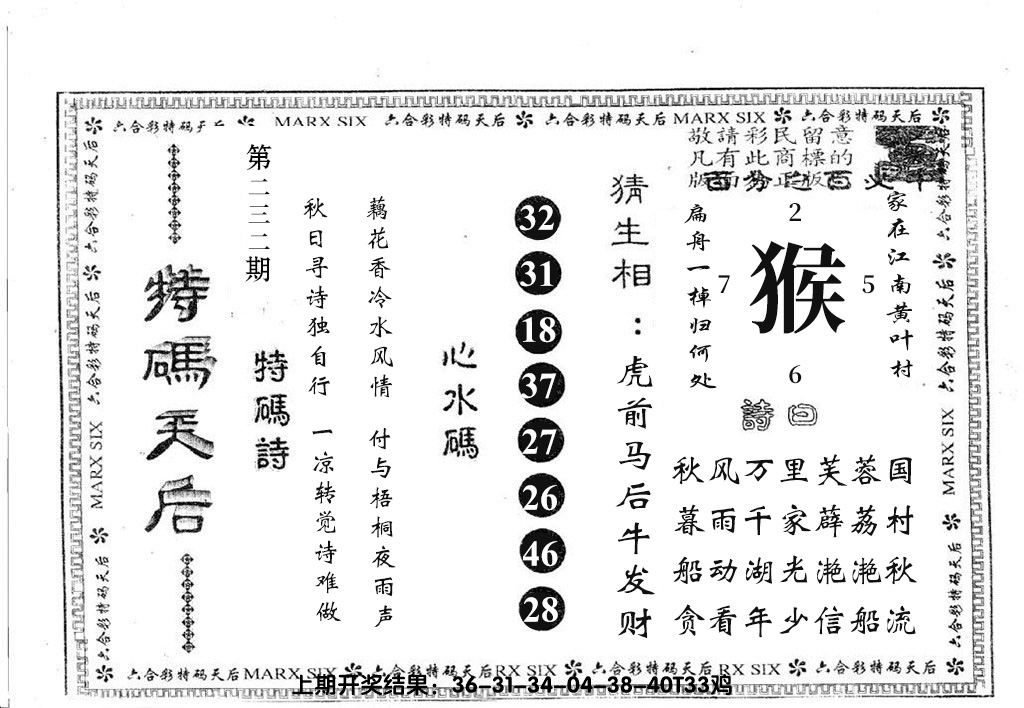 六合彩特码天后 MARX SIX 六合彩特码天后 六合彩特码天后 MARX SIX 六合彩特码天后
敬請彩民留意
凡有此商標的
版面為正版
家在江南黄叶村
扁舟一棹归何处
2
7 猴 5
6
詩曰
秋风万里芙蓉国
暮雨千家薜荔村
船动湖光滟滟秋
贪看年少信船流
猜生相：虎前马后牛发财
32
31
18
37
27
26
46
28
心水碼
藕花香冷水风情 付与梧桐夜雨声
秋日寻诗独自行 一凉转觉诗难做
特碼詩
第二三二期
特碼天后
六合彩特码天后
六合彩特码天后
MARX SIX
六合彩特码天后
六合彩特码天后
六合彩特码天后
MARX SIX
六合彩特码天后
六合彩特码天后 MARX SIX 六合彩特码天后 RX SIX 六合彩特码天后 RX SIX 六合彩特码天后
上期开奖结果：36-31-34-04-38-40T33鸡